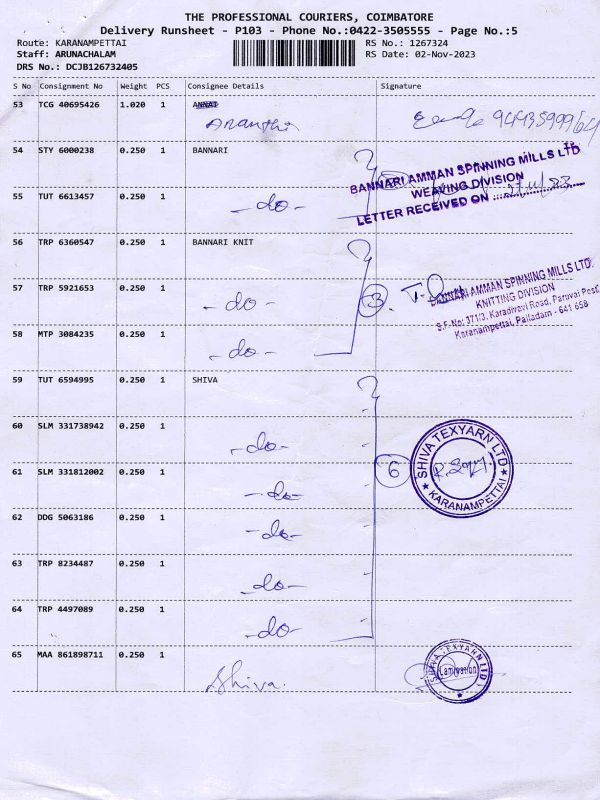 THE PROFESSIONAL COURIERS, COIMBATORE
Delivery Runsheet - P103 - Phone No.:0422-3505555 - Page No.:5
Route: KARANAMPETTAI RS No.: 1267324
Staff: ARUNACHALAM RS Date: 02-Nov-2023
DRS No.: DCJB126732405
S No Consignment No Weight PCS Consignee Details Signature
53 TCG 40695426 1.020 1
Anantha
54 STY 6000238 0.250 1 BANNARI
BANNARI AMMAN SPINNING MILLS LTD
WEAVING DIVISION
LETTER RECEIVED ON
55 TUT 6613457 0.250 1
-do-
56 TRP 6360547 0.250 1 BANNARI KNIT
57 TRP 5921653 0.250 1
-do- 3
BANNARI AMMAN SPINNING MILLS LTD.
KNITTING DIVISION
S.F. No: 371/3, Karadivavi Road, Paruvai Post,
Karanampettai, Palladam - 641 658
58 MTP 3084235 0.250 1
-do-
59 TUT 6594995 0.250 1 SHIVA
60 SLM 331738942 0.250 1
-do-
61 SLM 331812002 0.250 1
-do- 6
SHIVA TEXYARN LTD
KARANAMPETTAI
62 DDG 5063186 0.250 1
-do-
63 TRP 8234487 0.250 1
-do-
64 TRP 4497089 0.250 1
-do-
65 MAA 861898711 0.250 1
Shiva.
SHIVA TEXYARN LTD
Lamination